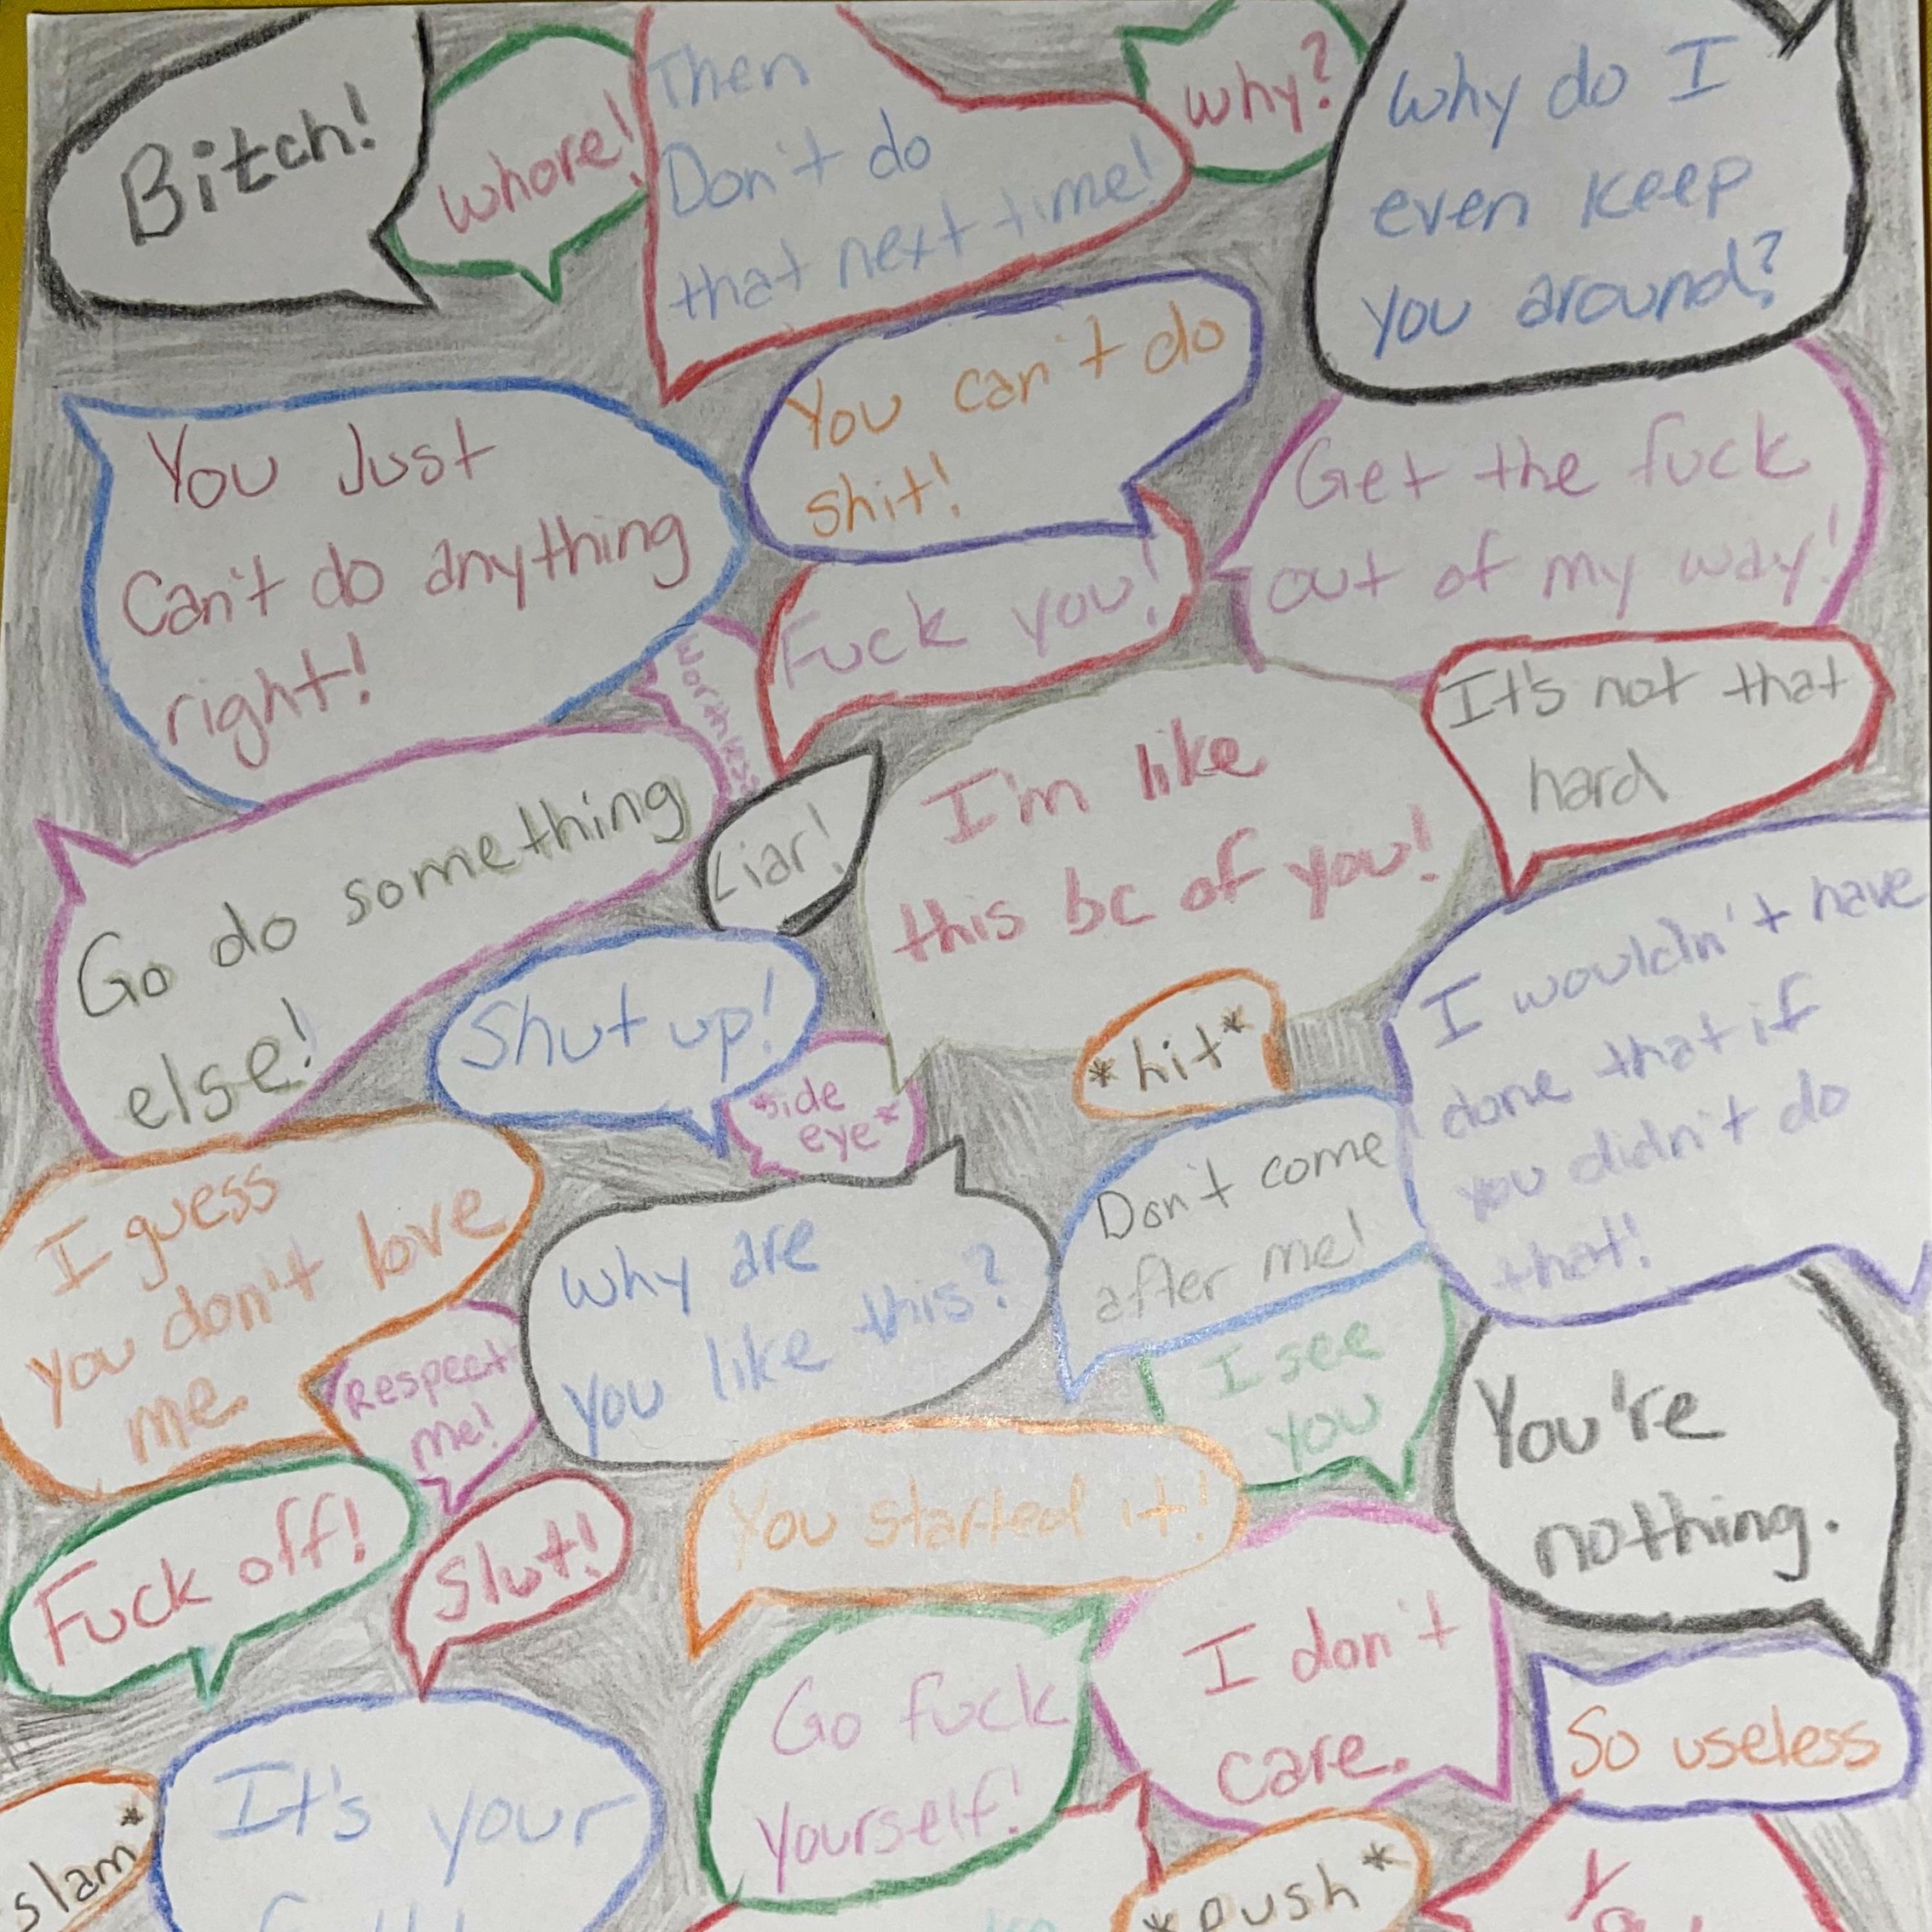 Bitch!
Whore!
Then
Don't do
that next time!
Why?
Why do I
even keep
you around?
You Just
Can't do anything
right!
You can't do
shit!
Get the fuck
out of my way!
Fuck you!
Worthless
It's not that
hard
Go do something
else!
Liar!
I'm like
this bc of you!
Shut up!
*side
eye*
*hit*
I wouldn't have
done that if
you didn't do
that!
I guess
you don't love
me.
Respect
me!
Why are
you like this?
Don't come
after me!
I see
you
You're
nothing.
Fuck off!
Slut!
You started it!
Go fuck
yourself!
I don't
care.
So useless
slam*
It's your
*push*